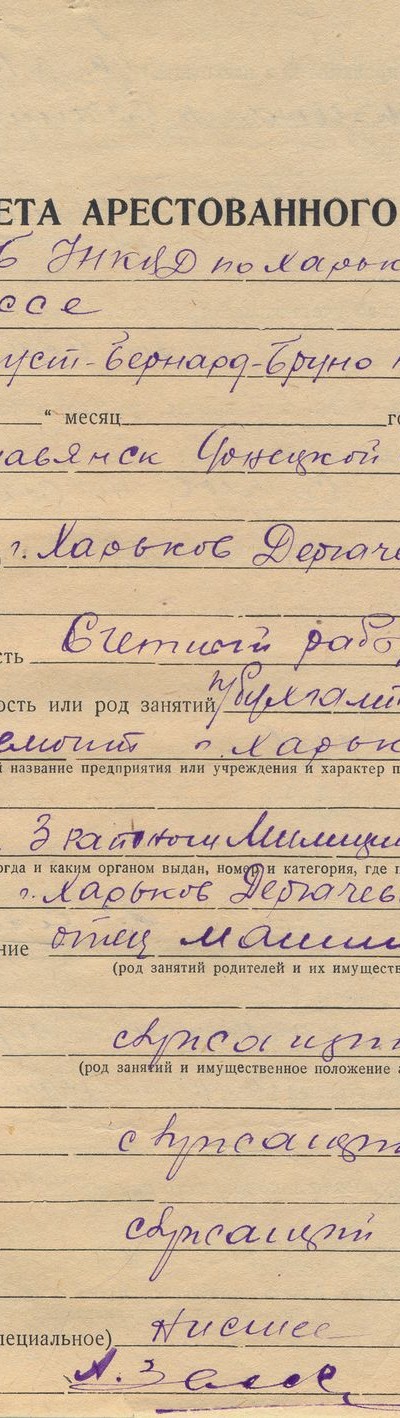 ЕТА АРЕСТОВАННОГО
Б УНКВД по Харьк
ссе
густ-Бернард-Бруно
“ месяц го
лавянск Донецкой
г. Харьков Дергаче
сть Счетный рабо
ость или род занятий бухгалт
емонт г. Харьк
название предприятия или учреждения и характер п
3 Милиции
огда и каким органом выдан, номер и категория, где п
г. Харьков Дергачев
ние отец маши
(род занятий родителей и их имуществ
служащий
(род занятий и имущественное положение
служащий
служащий
пециальное) Низшее